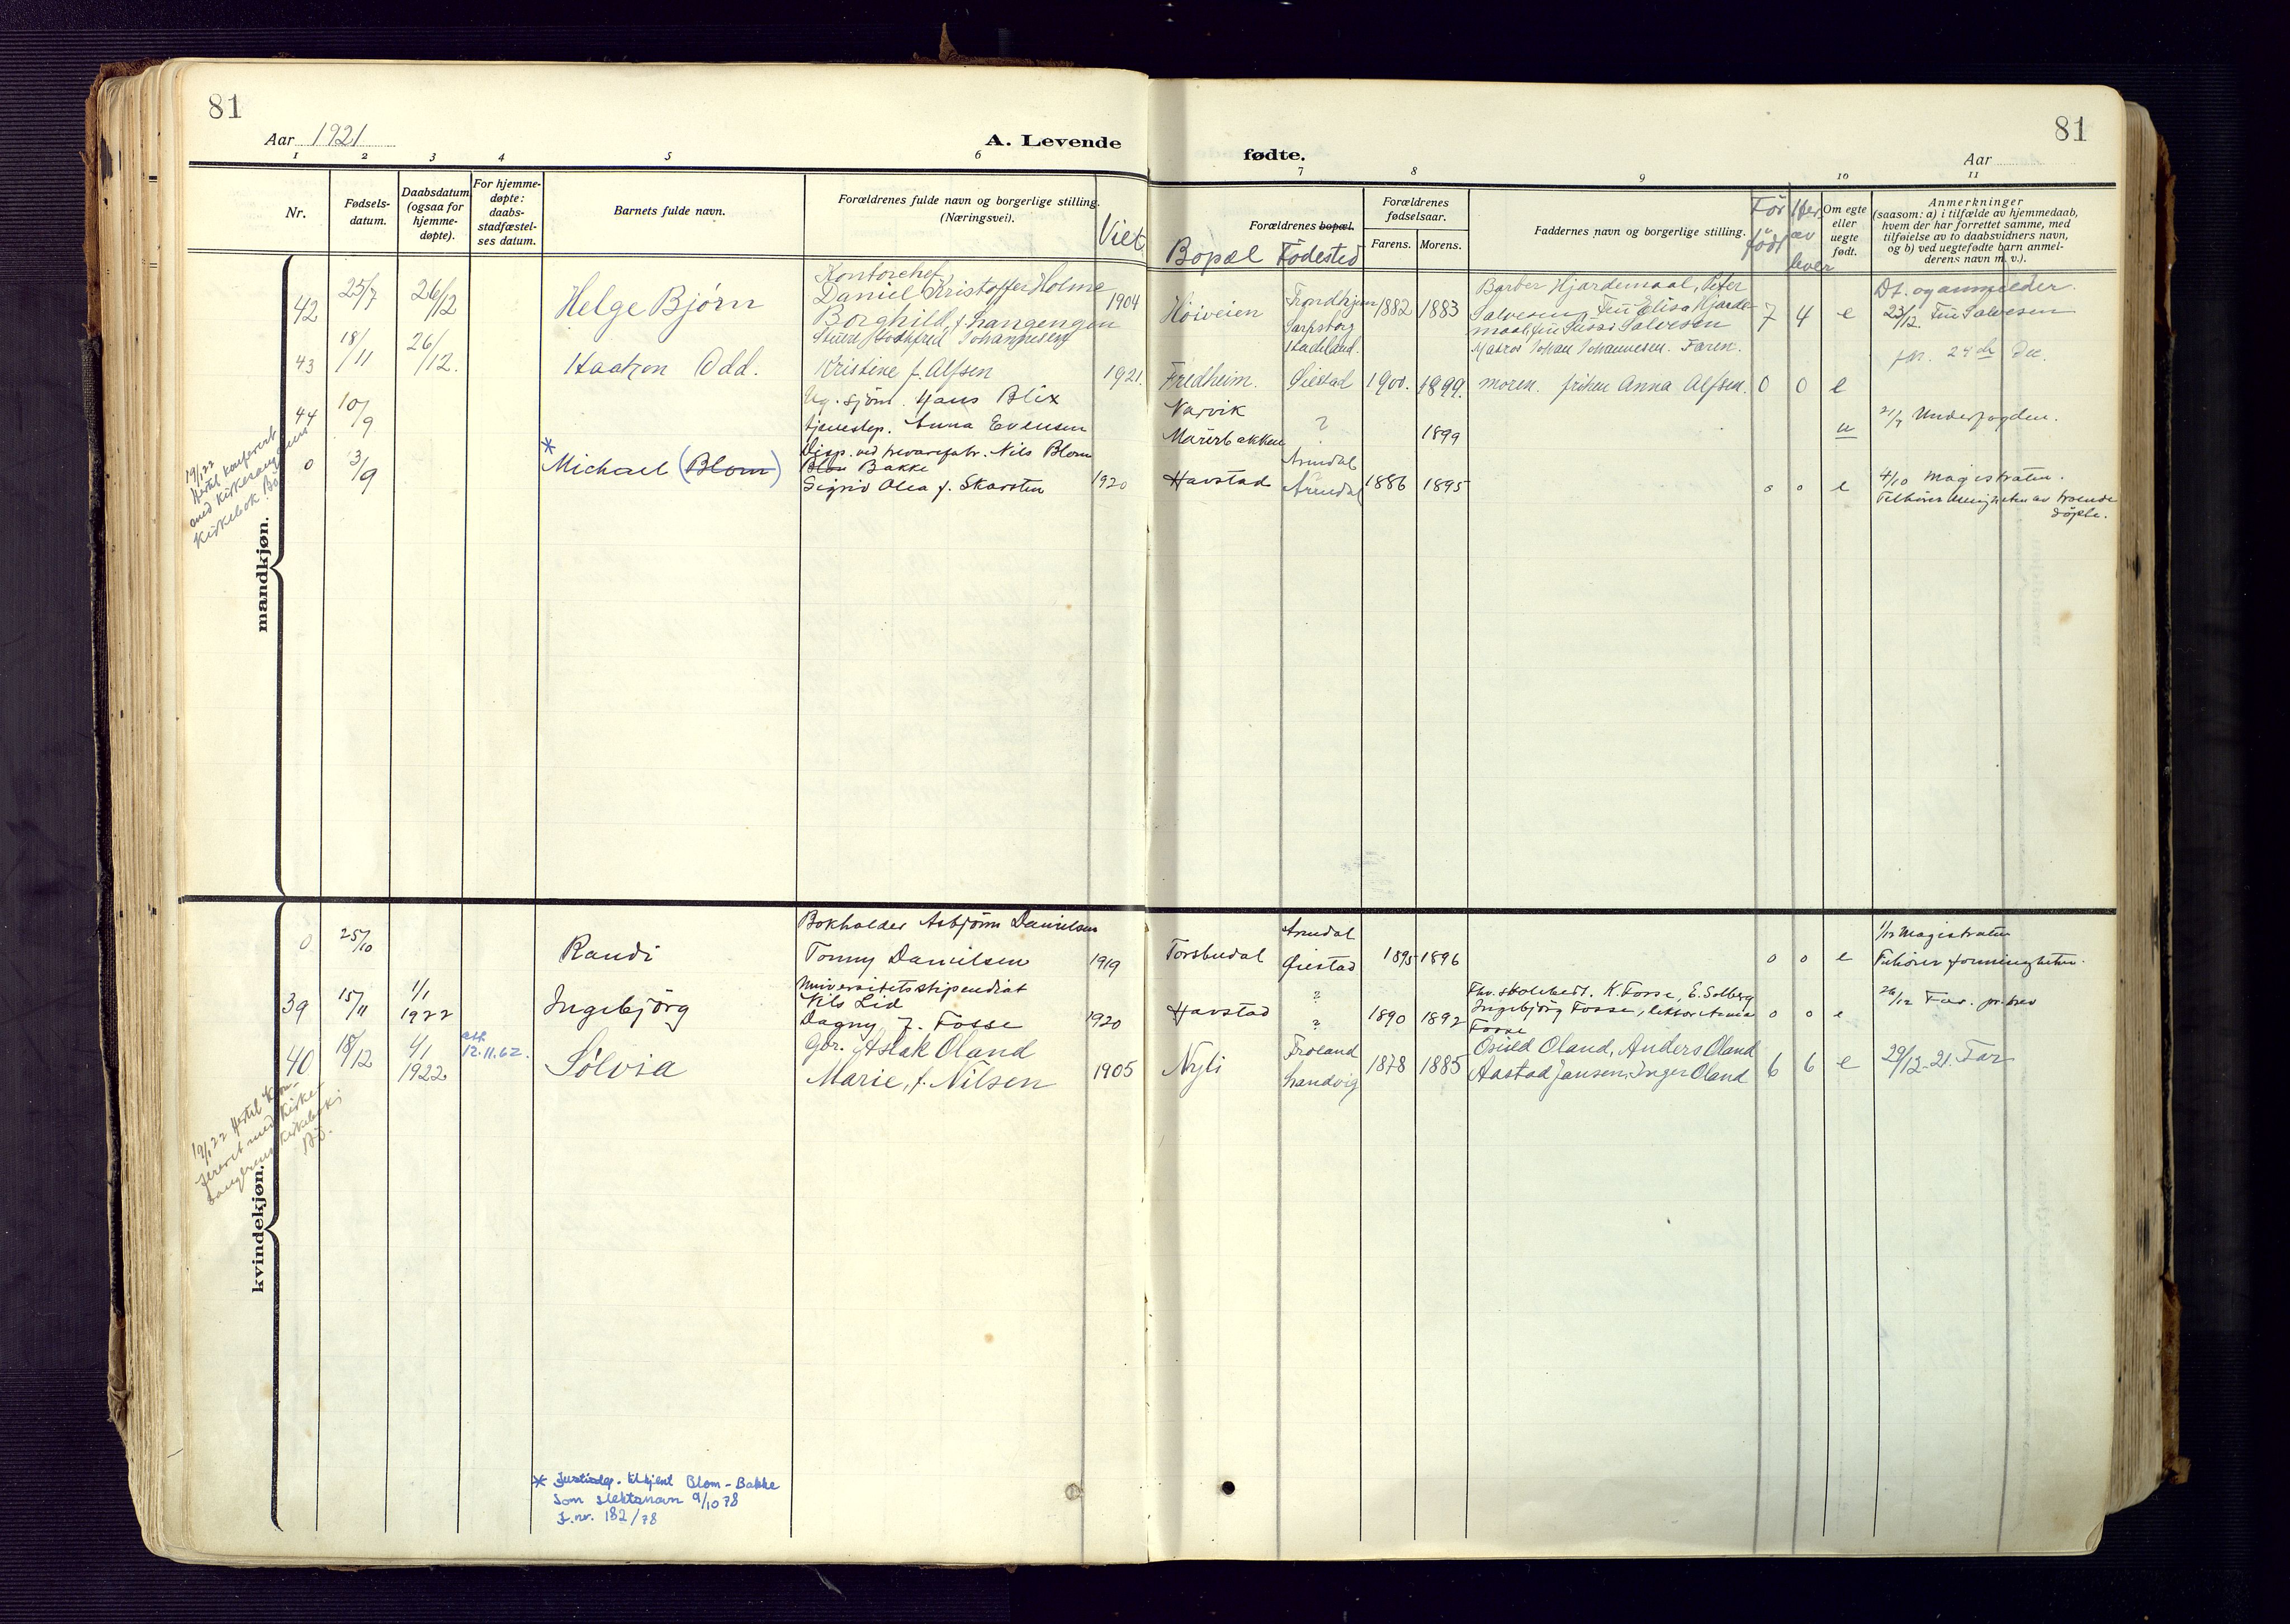 81
81
Aar 1921
A. Levende
fødte.
Aar
1 2 3 4 5 6 7 8 9 10 11
Nr.
Fødsels-
datum.
Daabsdatum
(ogsaa for
hjemme-
døpte).
For hjemme-
døpte:
daabs-
stadfæstel-
ses datum.
Barnets fulde navn.
Forældrenes fulde navn og borgerlige stilling.
(Næringsvei).
Viet
Forældrenes bopæl.
Bopæl Födested
Forældrenes
fødselsaar.
Farens. Morens.
Faddernes navn og borgerlige stilling.
Før
født
lever
Om egte
eller
uegte
født.
Anmerkninger
(saasom: a) i tilfælde av hjemmedaab,
hvem der har forrettet samme, med
tilføielse av to daabsvidners navn,
og b) ved uegtefødte barn anmel-
derens navn m. v.).
mandkjøn.
42 25/7 26/12 Helge Bjørn
Kontorchef
Daniel Kristoffer Holme
Borghild, f.
1904 Höiveien
Trondhjem
Sarpsborg
1882 1883
Barber Hjardemaal, Peter
Salvesen, Fru Elisa Hjarde-
maal, fru Salvesen
7 4 e
Df. og anmelder.
23/12. Fru Salvesen
43 18/11 26/12. Haakon Odd.
Johannesen
Kristine f. Alfsen
1921. Fredheim.
Hadeland.
Øiestad
1900. 1899.
Matros Johan Johannesen. Faren.
moren. frøken Anna Alfsen.
0 0 e
44 10/9
Ug. sjöm. Hans Blix
tjenestep. Anna Evensen
Narvik
? 1899
u
Underfogden.
0 3/9 * Michael (Blom)
Disp. ved Nils Blom
Bakke
Sigrid Olea f. Skarsten
1920 Havstad
Arendal
Arendal
1886 1895
0 0 e
4/10 magistraten.
Tilhører
døpte.
19/1 22
Hertil konferert
med kirkesangerens
kirkebok
kvindekjøn.
0 25/10 Randi
Bokholder Asbjörn Danielsen
Tonny Danielsen
1919 Torsbudal
Arendal
Øiestad
1895 1896
0 0 e
1/12 Magistraten
39 15/11 1/1 1922 Ingebjörg
Universitetsstipendiat
Nils Lid
Dagny, f. Fosse
1920 Havstad
?
?
1890 1892
K. Fosse, E. Solberg
Ingebjörg Fosse, lektor Anna
Fosse
0 0 e
Far. pr. brev
40 18/12 1/1 1922
att.
12.11.62.
Sølvia
Gbr. Aslak Oland
Marie, f. Nilsen
1905 Nyli
Froland
Landvig
1878 1885
Osuld Oland, Anders Oland
Aastad Jansen, Inger Oland
6 6 e
29/12-21. Far
19/1 22 Hertil kon-
fereret med kirke-
sangerens kirkebok
* Justisdep. tilkjent Blom-Bakke
som slektsnavn 9/10 78
J.nr. 182/78